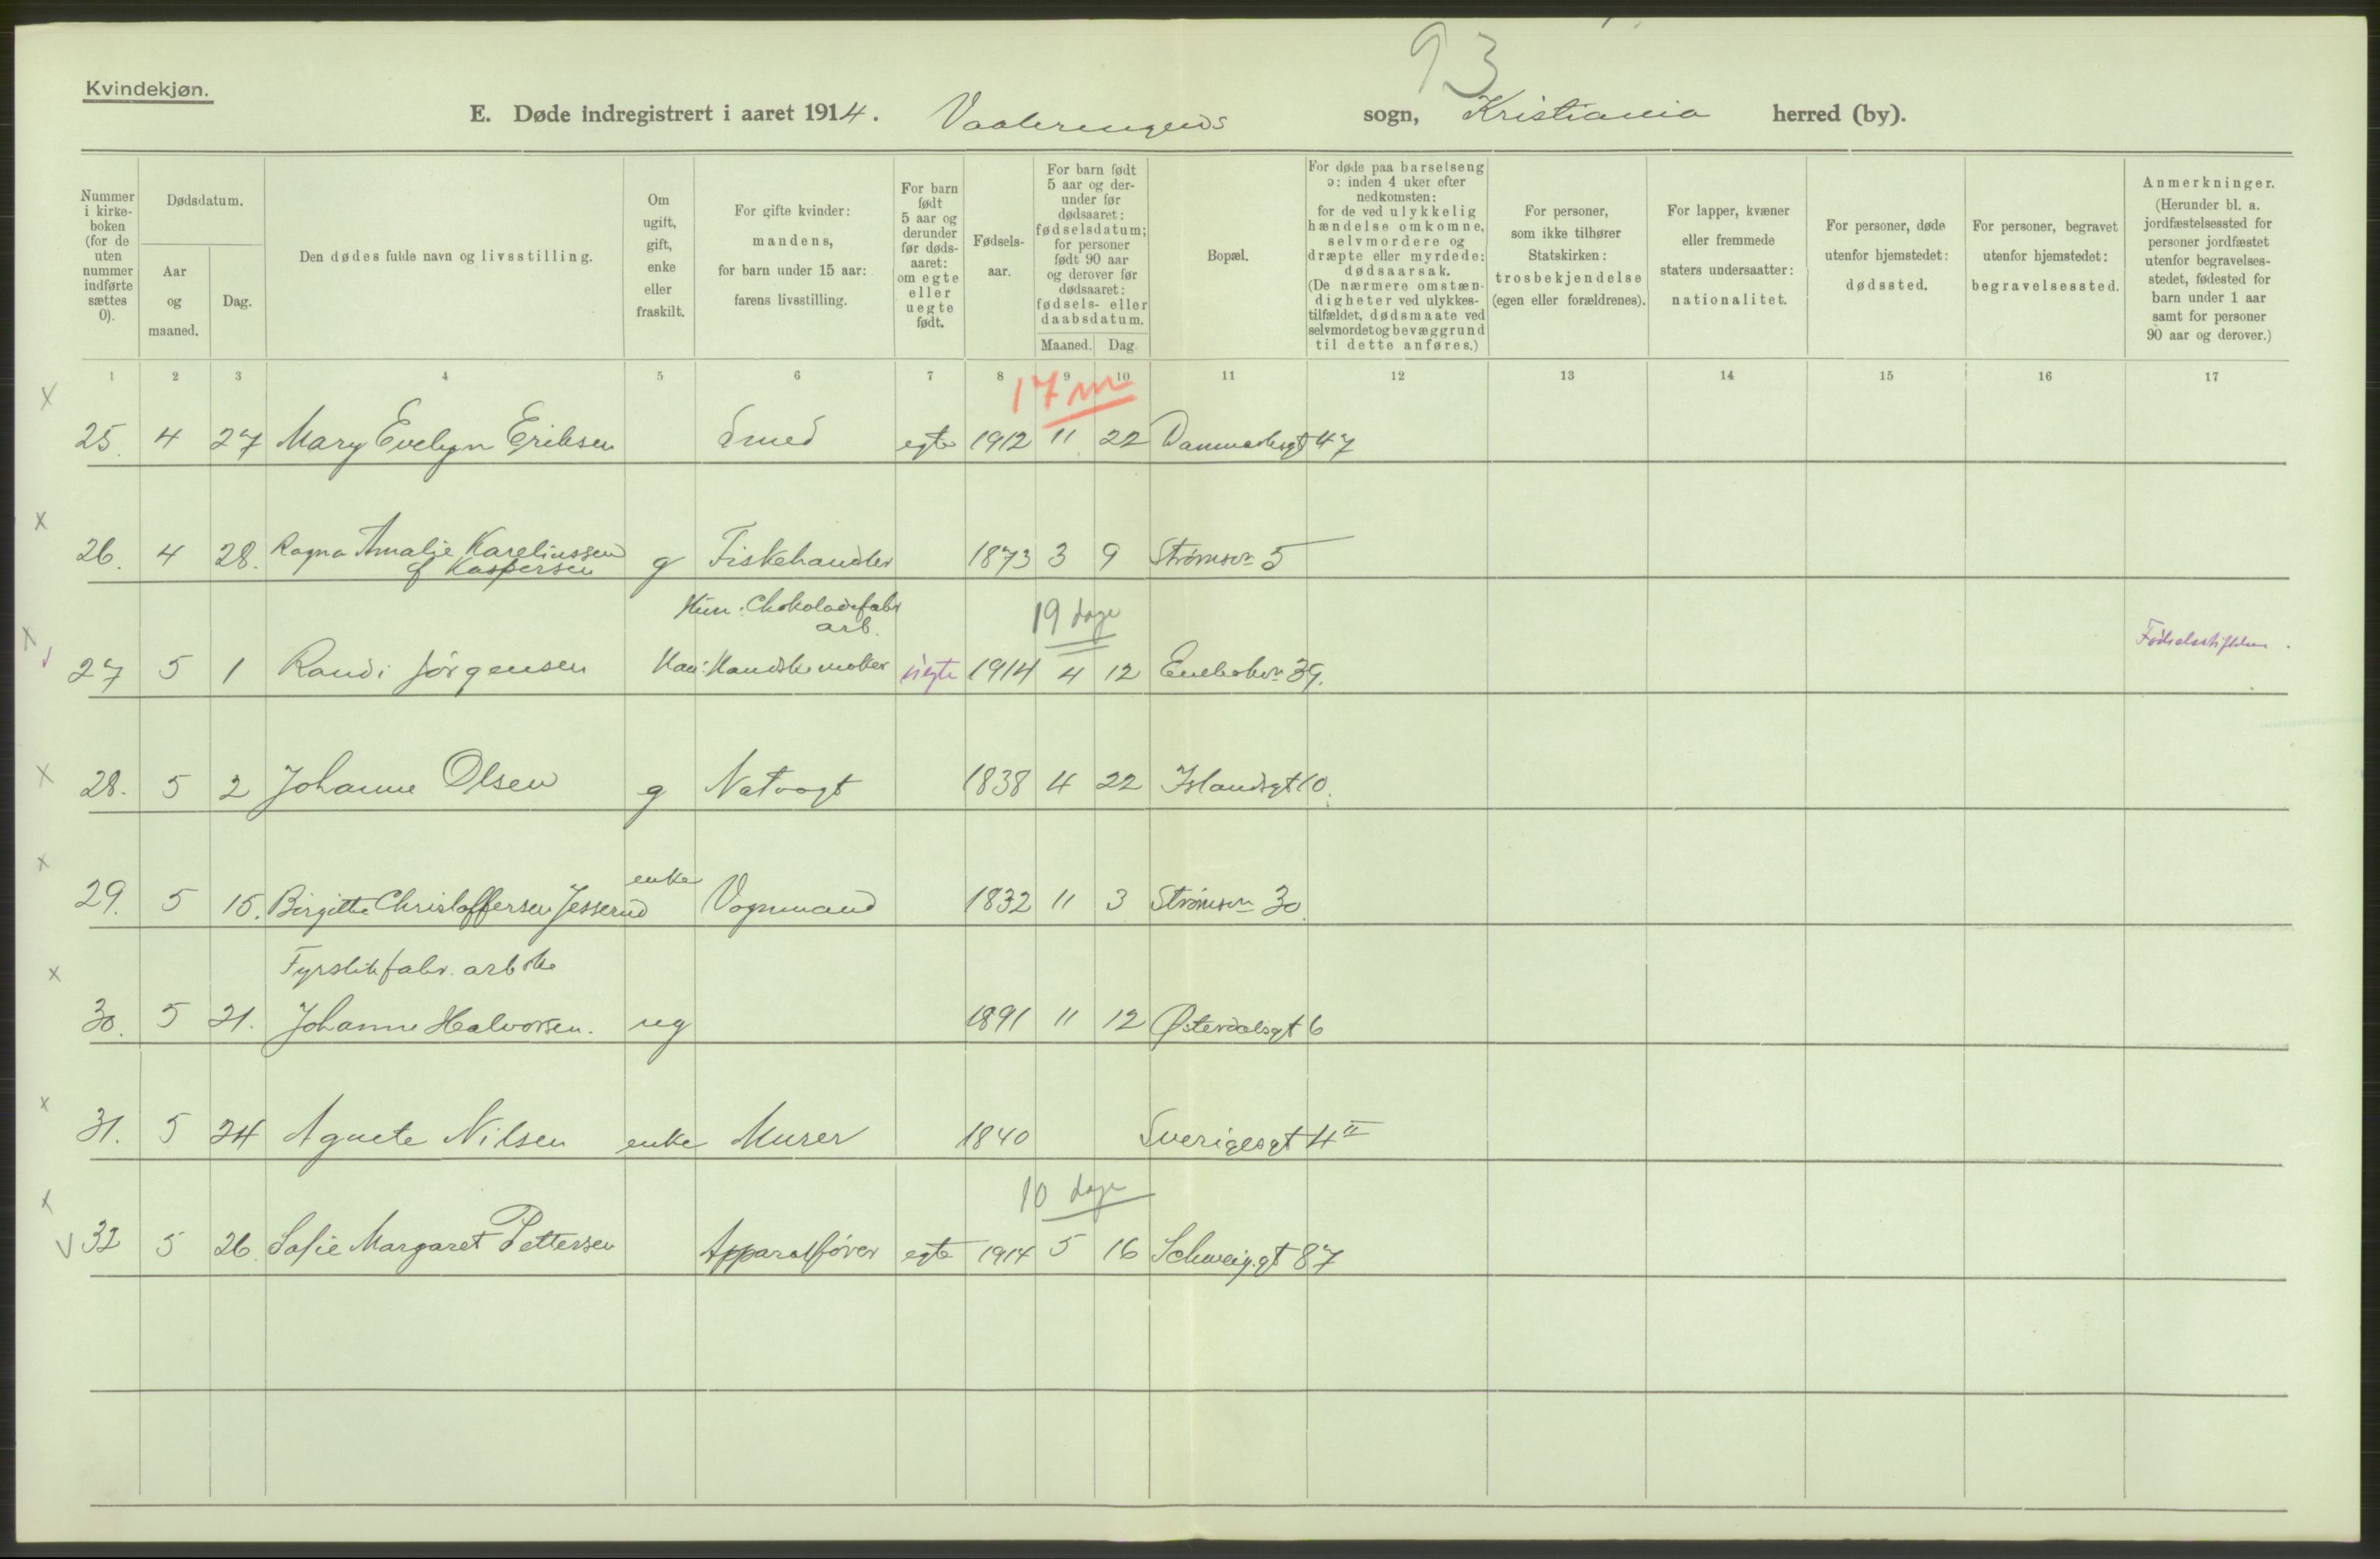 93
Kvindekjøn.
E. Døde indregistrert i aaret 1914. Vaalerengens sogn, Kristiania herred (by).
Nummer i kirke- boken (for de uten nummer indførte sættes 0).
Dødsdatum.
Aar og maaned.
Dag.
Den dødes fulde navn og livsstilling.
Om ugift, gift, enke eller fraskilt.
For gifte kvinder: mandens, for barn under 15 aar: farens livsstilling.
For barn født 5 aar og derunder før døds- aaret: om egte eller uegte født.
Fødsels- aar.
For barn født 5 aar og der- under før dødsaaret: fødselsdatum; for personer født 90 aar og derover før dødsaaret: fødsels- eller daabsdatum.
Maaned. Dag.
Bopæl.
For døde paa barselseng ɔ: inden 4 uker efter nedkomsten: for de ved ulykkelig hændelse omkomne, selvmordere og dræpte eller myrdede: dødsaarsak. (De nærmere omstæn- digheter ved ulykkes- tilfældet, dødsmaate ved selvmordet og bevæggrund til dette anføres.)
For personer, som ikke tilhører Statskirken: trosbekjendelse (egen eller forældrenes).
For lapper, kvæner eller fremmede staters undersaatter: nationalitet.
For personer, døde utenfor hjemstedet: dødssted.
For personer, begravet utenfor hjemstedet: begravelsessted.
Anmerkninger. (Herunder bl. a. jordfæstelsessted for personer jordfæstet utenfor begravelses- stedet, fødested for barn under 1 aar samt for personer 90 aar og derover.)
1 2 3 4 5 6 7 8 9 10 11 12 13 14 15 16 17
17 m
25. 4 27 Mary Evelyn Eriksen Smed egte 1912 11 22 Danmarksgt 47
26. 4 28. Ragna Amalie Kareliussen g Fiskehandler 1873 3 9 Strømsvn 5
f Kaspersen
Hun: Chokoladefabr arb. 19 dage
27 5 1 Randi Jørgensen Han: Handskemaker uegte 1914 4 12 Enebakvn 39. Fødselsstiftelsen.
28. 5 2 Johanne Olsen g Natvogt 1838 4 22 Islandsgt 10.
29. 5 15. Birgitte Christoffersen Jesserud enke Vognmand 1832 11 3 Strømsvn 30.
Fyrstikfabr. arbske
30. 5 21. Johanne Halvorsen. ug 1891 11 12 Østerdalsgt 6
31. 5 24 Agnete Nilsen enke Murer 1840 Sverigesgt 4 II
10 dage
32 5 26. Sofie Margaret Pettersen Apparatfører egte 1914 5 16 Schweig.gt 87